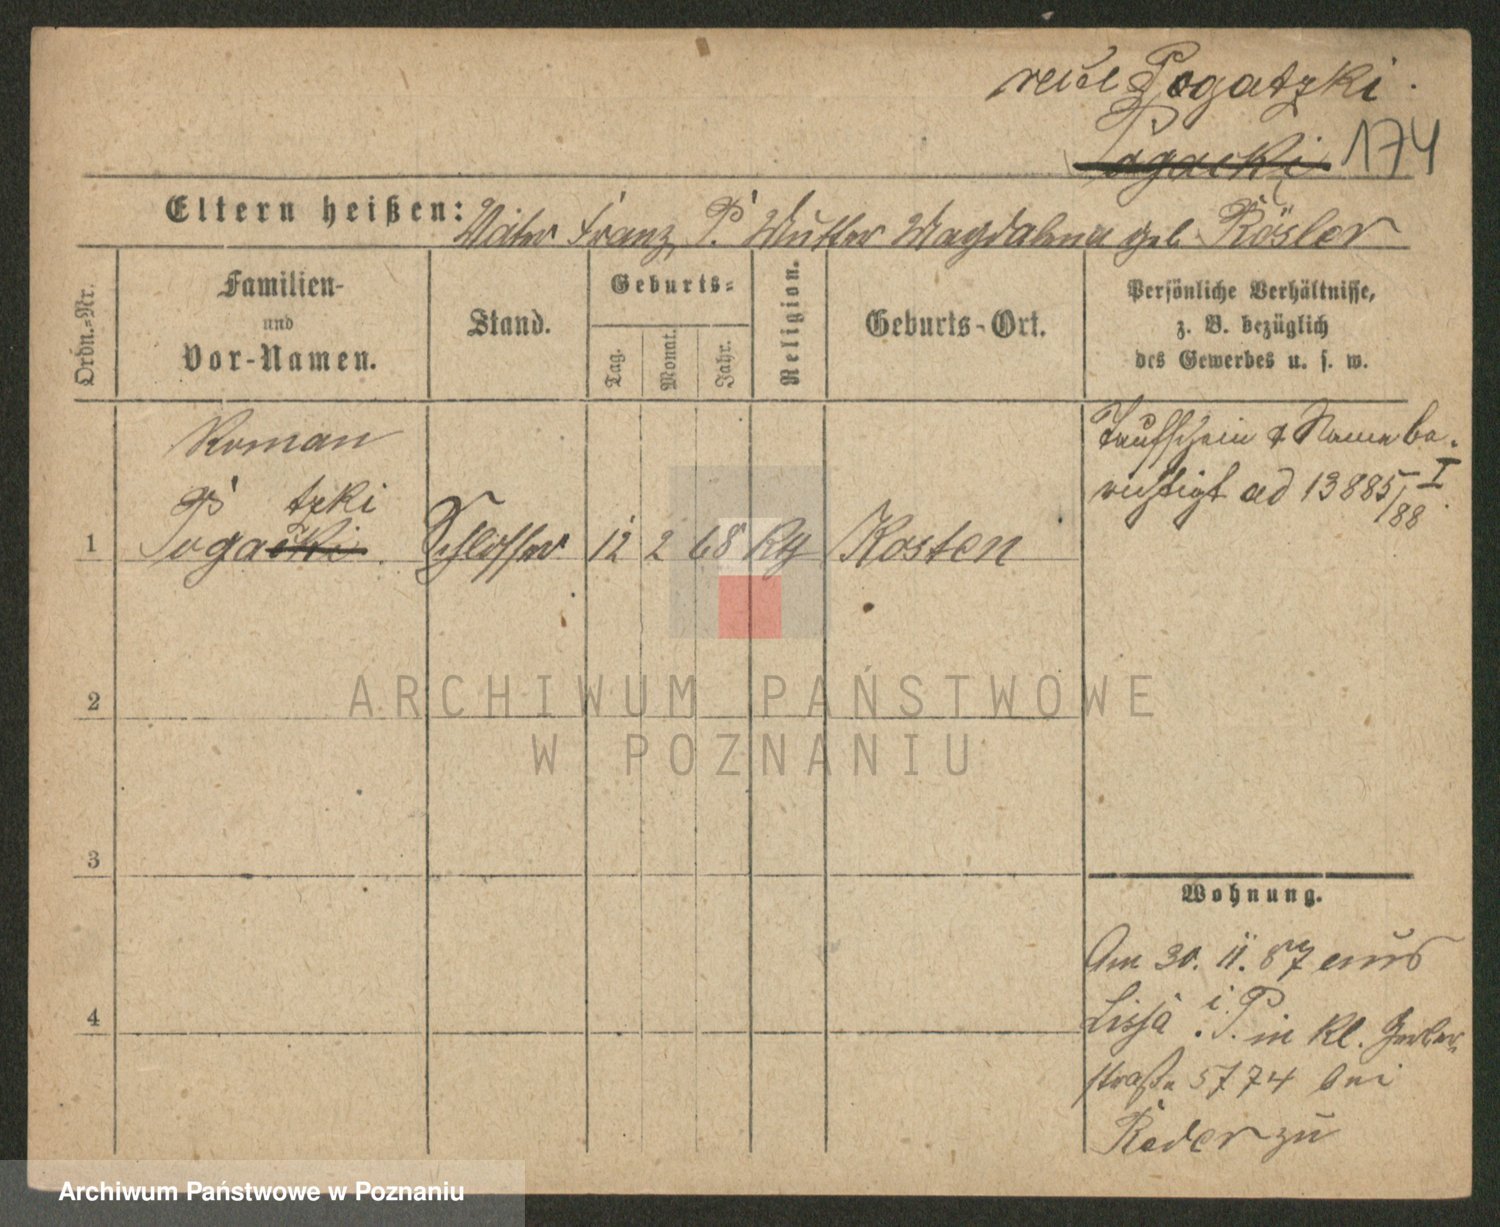 recte Pogatzki.
Pogacki 174
Eltern heißen: Vater Franz P. Mutter Magdalena geb Rösler
Ordn.=Nr.
Familien-
und
Vor-Namen.
Stand.
Geburts=
Tag.
Monat.
Jahr.
Religion.
Geburts-Ort.
Persönliche Verhältnisse,
z. B. bezüglich
des Gewerbes u. s. w.
Roman
tzki
1 Pogacki Schlosser 12 2 68 Kosten
Taufschein & Name be-
richtigt ad 13885/88 I
2
3
4
Wohnung.
Am 30. 11. 87 aus
Lissa i. P. in Kl. Gerber-
straße 5774 bei
Roder zu
ARCHIWUM PAŃSTWOWE
W POZNANIU
Archiwum Państwowe w Poznaniu